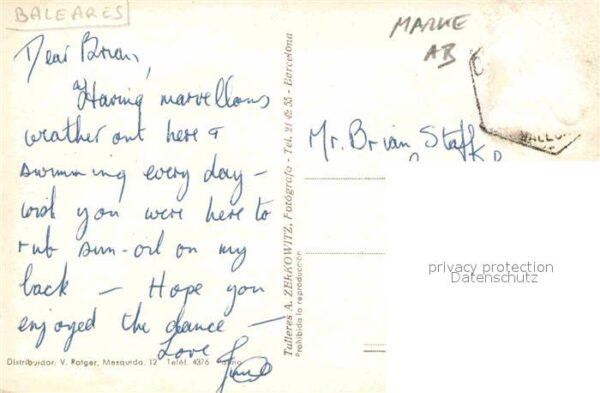 BALEARES
Dear Brian,
Having marvellous
weather out here &
swimming every day —
wish you were here to
rub sun-oil on my
back — Hope you
enjoyed the dance —
Love
Distribuidor: V. Rotger, Mesquida, 12 Teléf. 4376 Palma
Talleres A. ZERKOWITZ, Fotógrafo - Tel. 21 42 55 - Barcelona
Prohibida la reproducción
MARKE
AB
Mr. Brian
privacy protection
Datenschutz